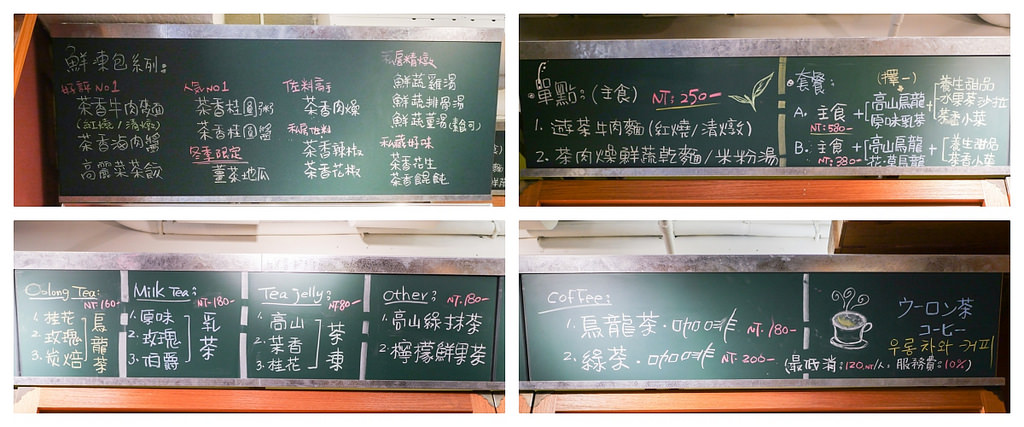 鮮凍包系列:
好評 No1
茶香牛肉燴麵
(紅燒/清燉)
茶香滷肉醬
高麗菜茶飯
人氣 No1
茶香桂圓粥
茶香桂圓醬
冬季限定
薑茶地瓜
佐料高手
茶香肉燥
私房佐料
茶香辣椒
茶香花椒
私房精燉
鮮蔬雞湯
鮮蔬排骨湯
鮮蔬薑湯(素可)
私藏好味
茶香花生
茶香餛飩
單點:(主食) NT:250-
1. 遊茶牛肉麵(紅燒/清燉)
2. 茶肉燥鮮蔬乾麵/米粉湯
套餐: (擇一)
A. 主食+[高山烏龍 原味乳茶]+[養生甜品 水果茶沙拉 茶香小菜]
NT:580-
B. 主食+[高山烏龍 花草烏龍]+[養生甜品 茶香小菜]
NT:380-
Oolong Tea: NT:160-
1. 桂花
2. 玫瑰
3. 炭焙
烏龍茶
Milk Tea: NT:180-
1. 原味
2. 玫瑰
3. 伯爵
乳茶
Tea jelly: NT80-
1. 高山
2. 茶香
3. 桂花
茶凍
other: NT:180-
1. 高山綠抹茶
2. 檸檬鮮果茶
Coffee:
1. 烏龍茶·咖啡 NT:180-
2. 綠茶·咖啡 NT:200-
ウーロン茶
コーヒー
우롱차와 커피
(最低消:120.NT/人, 服務費:10%)